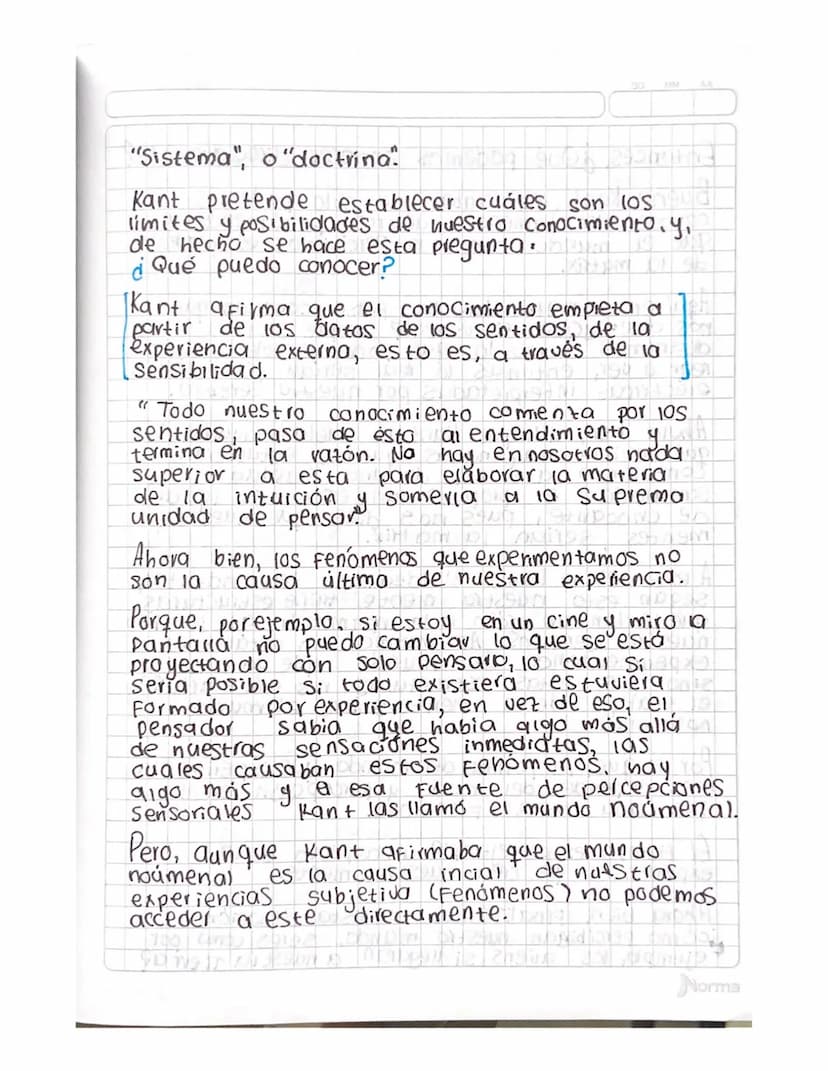 "Sistema", o "doctrina".
Kant pretende establecer cuáles son los
límites y posibilidades de nuestro conocimiento. y,
de hecho se hace esta pregunta.
¿Qué puedo conocer?
Kant afirma que el conocimiento empieza a
partir de los datos de los sentidos, de la
experiencia externa, esto es, a través de la
sensibilidad.
"Todo nuestro conocimiento comienza por los
sentidos, pasa de ésto al entendimiento y
termina en la razón. No hay en nosotros nada
superior a esta para elaborar la materia
de la intuición y somerla a la suprema
unidad de pensar."
Ahora bien, los Fenómenos que experimentamos no
son la causa última de nuestra experiencia.
Porque, por ejemplo, si estoy en un cine y miro la
pantalla no puedo cambiar lo que se está
proyectando con solo pensarlo, lo cual sí
sería posible si todo existiera estuviera
formado por experiencia, en vez de eso, el
pensador sabia que había algo más allá
de nuestras sensaciones inmediatas, las
cuales causaban estos Fenómenos. hay
algo más y a esa fuente de percepciones
sensoriales Kant las llamó el mundo noúmenal.
Pero, aunque Kant afirmaba que el mundo
noúmenal es la causa incial de nuestras
experiencias subjetiva (Fenómenos) no podemos
acceder a este directamente.
Norma